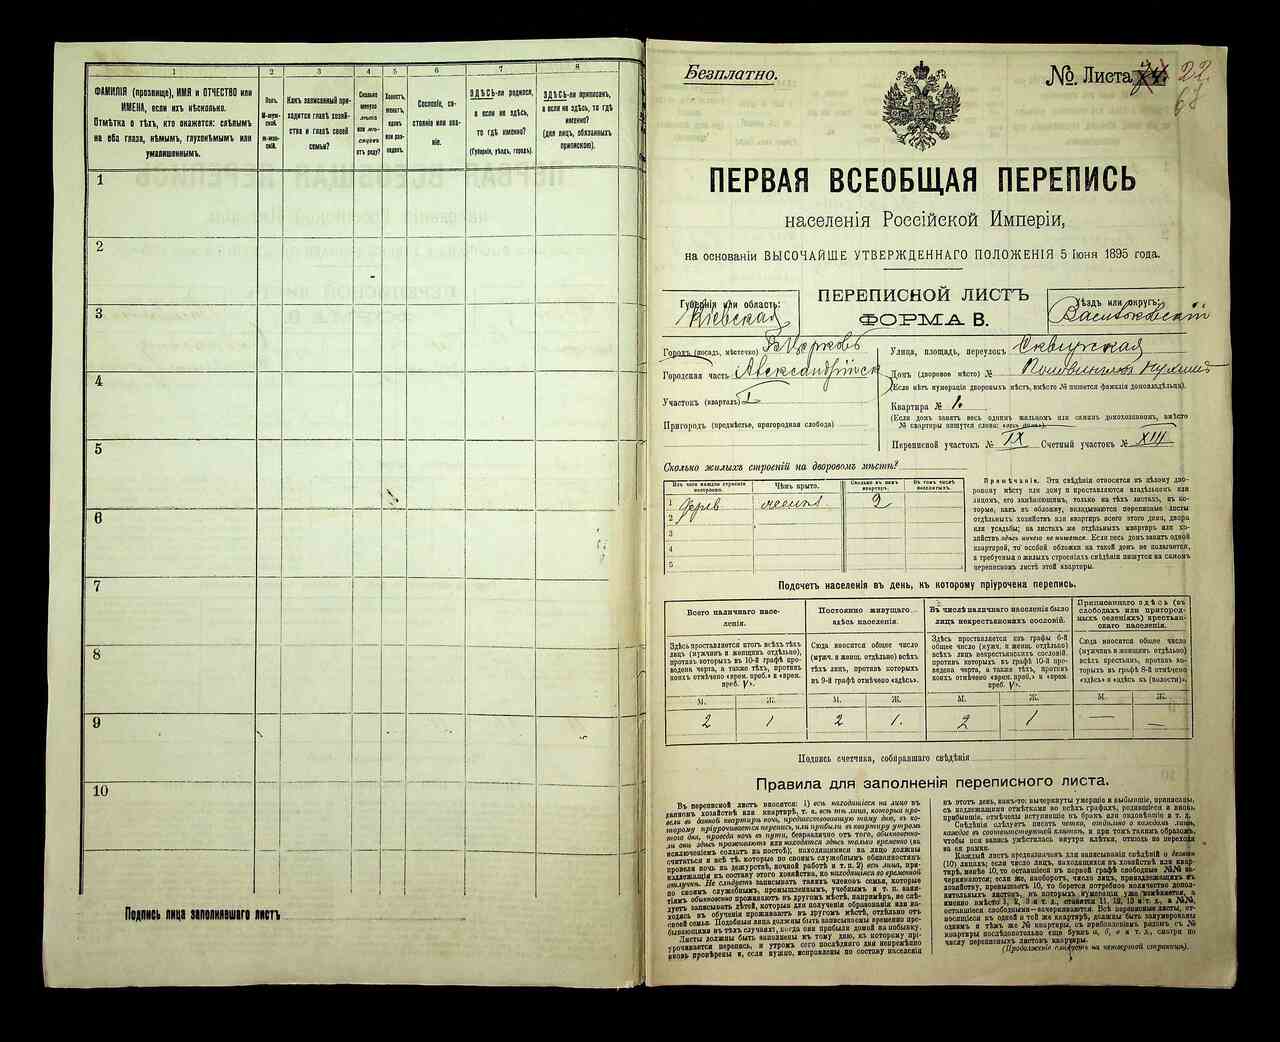 1
2
3
4
5
6
7
8
ФАМИЛІЯ (прозвище), ИМЯ и ОТЧЕСТВО или
ИМЕНА, если ихъ нѣсколько.
Отмѣтка о тѣхъ, кто окажется: слѣпымъ
на оба глаза, нѣмымъ, глухонѣмымъ или
умалишеннымъ.
Полъ.
М-муж-
ской.
Ж-жен-
скій.
Какъ записанный при-
ходится главѣ хозяй-
ства и главѣ своей
семьи?
Сколько
минуло
лѣтъ
или мѣ-
сяцевъ
отъ роду?
Холостъ,
женатъ,
вдовъ
или раз-
веденъ.
Сословіе, со-
стояніе или зва-
ніе.
ЗДѢСЬ-ли родился,
а если не здѣсь,
то гдѣ именно?
(Губернія, уѣздъ, городъ).
ЗДѢСЬ-ли приписанъ,
а если не здѣсь, то гдѣ
именно?
(для лицъ, обязанныхъ
припискою).
1
2
3
4
5
6
7
8
9
10
Подпись лица заполнявшаго листъ
Безплатно.
№ Листа 74. 22.
67
ПЕРВАЯ ВСЕОБЩАЯ ПЕРЕПИСЬ
населенія Россійской Имперіи,
на основаніи ВЫСОЧАЙШЕ УТВЕРЖДЕННАГО ПОЛОЖЕНІЯ 5 Іюня 1895 года.
Губернія или область:
Кіевская
ПЕРЕПИСНОЙ ЛИСТЪ
ФОРМА В.
Уѣздъ или округъ:
Васильковскій
Городъ (посадъ, мѣстечко) Б Церковь
Городская часть Александрійск
Участокъ (кварталъ) I
Пригородъ (предмѣстье, пригородная слобода)
Улица, площадь, переулокъ Сквирская
Домъ (дворовое мѣсто) №
(Если нѣтъ нумераціи дворовыхъ мѣстъ, вмѣсто № пишется фамилія домовладѣльца).
Квартира № 1.
(Если домъ занятъ весь однимъ жильцомъ или самимъ домохозяиномъ, вмѣсто
№ квартиры пишутся слова: «весь домъ»).
Переписной участокъ № IX Счетный участокъ № XIII
Сколько жилыхъ строеній на дворовомъ мѣстѣ?
Изъ чего каждое строеніе
построено.
Чѣмъ крыто.
Сколько въ нихъ
квартиръ.
Въ томъ числѣ
незанятыхъ.
1 дерев 2
2
3
4
5
Примѣчаніе. Эта свѣдѣнія относятся къ цѣлому дво-
ровому мѣсту или дому и проставляются владѣльцемъ или
лицомъ, его замѣняющимъ, только на тѣхъ листахъ, въ ко-
торые, какъ въ обложку, вкладываются переписные листы
отдѣльныхъ хозяйствъ или квартиръ всего этого дома, двора
или усадьбы; на листахъ же отдѣльныхъ квартиръ или хо-
зяйствъ здѣсь ничего не пишется. Если весь домъ занятъ одной
квартирой, то особой обложки на такой домъ не полагается,
а требуемыя о жилыхъ строеніяхъ свѣдѣнія пишутся на самомъ
переписномъ листѣ этой квартиры.
Подсчетъ населенія въ день, къ которому пріурочена перепись.
Всего наличнаго насе-
ленія.
Здѣсь проставляется итогъ всѣхъ тѣхъ
лицъ (мужчинъ и женщинъ отдѣльно),
противъ которыхъ въ 10-й графѣ про-
ведена черта, а также тѣхъ, противъ
коихъ отмѣчено «врем. проб.» и «врем.
преб. V».
Постоянно живущаго
здѣсь населенія.
Сюда вносится общее число
(мужч. и женщ. отдѣльно) всѣхъ
тѣхъ лицъ, противъ которыхъ
въ 9-й графѣ отмѣчено «здѣсь».
Въ числѣ наличнаго населенія было
лицъ некрестьянскихъ сословій.
Здѣсь проставляется изъ графы 6-й
общее число (мужч. и женщ. отдѣльно)
всѣхъ лицъ некрестьянскихъ сословій,
противъ которыхъ въ графѣ 10-й про-
ведена черта, а также тѣхъ, противъ
коихъ отмѣчено «врем. преб.» и «врем.
преб. V».
Приписаннаго здѣсь (въ
слободахъ или пригород-
ныхъ селеніяхъ) крестьян-
скаго населенія.
Сюда вносится общее число
(мужчинъ и женщинъ отдѣльно)
всѣхъ крестьянъ, противъ ко-
торыхъ въ графѣ 8-й отмѣчено
«здѣсь» и «здѣсь къ (волости)».
М. Ж. М. Ж. М. Ж. М. Ж.
2 1 2 1. 2 1 — —
Подпись счетчика, собиравшаго свѣдѣнія
Правила для заполненія переписного листа.
Въ переписной листъ вносятся: 1) всѣ находящіеся на лицо въ
данномъ хозяйствѣ или квартирѣ, т. е. всѣ тѣ лица, которыя про-
вели въ данной квартирѣ ночь, предшествовавшую тому дню, къ ко-
торому пріурочивается перепись, или прибыли въ квартиру утромъ
этого дня, проведя ночь въ пути, безразлично отъ того, обыкновенно-
ли они здѣсь проживаютъ или находятся здѣсь только временно (за
исключеніемъ солдатъ на постоѣ); находящимися на лицо должны
считаться и всѣ тѣ, которые по своимъ служебнымъ обязанностямъ
провели ночь на дежурствѣ, ночной работѣ и т. п. 2) всѣ лица, при-
надлежащія къ составу этого хозяйства, но находящіяся во временной
отлучкѣ. Не слѣдуетъ записывать такихъ членовъ семьи, которые
по своимъ служебнымъ, промышленнымъ, учебнымъ и т. п. заня-
тіямъ обыкновенно проживаютъ въ другомъ мѣстѣ, напримѣръ, не слѣ-
дуетъ записывать дѣтей, которыя для полученія образованія или на-
ходясь въ обученіи проживаютъ въ другомъ мѣстѣ, отдѣльно отъ
своей семьи. Подобныя лица должны быть записываемы временно пре-
бывающими въ тѣхъ случаяхъ, когда они прибыли домой на побывку.
Листы должны быть заполнены къ тому дню, къ которому прі-
урочивается перепись, и утромъ сего послѣдняго дня непремѣнно
вновь провѣрены и, если нужно, исправлены по составу населенія
въ этотъ день, какъ-то: вычеркнуты умершіе и выбывшіе, приписаны,
съ надлежащими отмѣтками во всѣхъ графахъ, родившіеся и вновь
прибывшіе, отмѣчены вступившіе въ бракъ или овдовѣвшіе и т. д.
Свѣдѣнія слѣдуетъ писать четко, отдѣльно о каждомъ лицѣ,
каждое въ соотвѣтствующей клѣткѣ, и при томъ такимъ образомъ,
чтобы вся запись умѣстилась внутри клѣтки, отнюдь не переходя
за ея рамки.
Каждый листъ предназначенъ для записыванія свѣдѣній о десяти
(10) лицахъ; если число лицъ, находящихся въ хозяйствѣ или квар-
тирѣ, менѣе 10, то оставшіеся въ первой графѣ свободные №№ за-
черкиваются; если же, наоборотъ, число лицъ, принадлежащихъ къ
хозяйству, превышаетъ 10, то берется потребное количество допол-
нительныхъ листовъ, въ которыхъ нумерація уже измѣняется, а
именно вмѣсто 1, 2, 3 и т. д., ставятся 11, 12, 13 и т. д., а №№,
оставшіеся свободными—вычеркиваются. Всѣ переписные листы, от-
носящіеся къ одной и той же квартирѣ, должны быть занумерованы
однимъ и тѣмъ же № квартиры, съ прибавленіемъ рядомъ съ №
квартиры послѣдовательно еще буквъ а, б, в и т. д., смотря по
числу переписныхъ листовъ квартиры.
(Продолженіе слѣдуетъ на четвертой страницѣ).